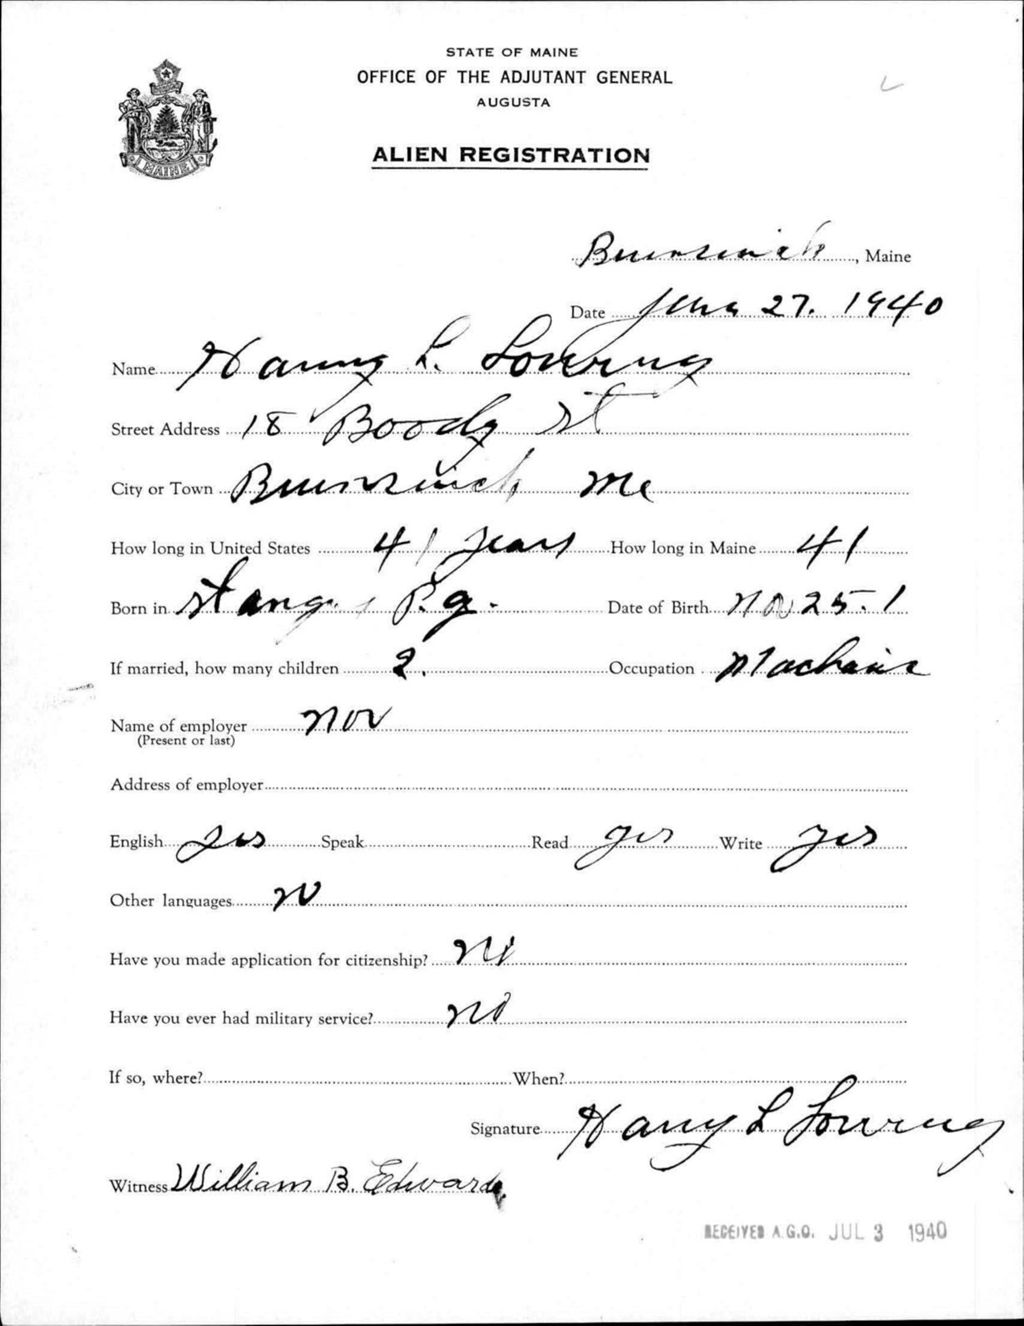 STATE OF MAINE
OFFICE OF THE ADJUTANT GENERAL
AUGUSTA
ALIEN REGISTRATION
MAINE
Brunswick, Maine
Date June 27. 1940
Name Harry L. Lowrey
Street Address 18 Boody St
City or Town Brunswick Me
How long in United States 41 years How long in Maine 41
Born in P.Q. Date of Birth Nov 25.1
If married, how many children 2. Occupation
Name of employer
(Present or last)
Address of employer
English yes Speak Read yes Write yes
Other languages no
Have you made application for citizenship? no
Have you ever had military service? no
If so, where? When?
Signature Harry L Lowrey
Witness William B. Edwards
RECEIVED A.G.O. JUL 3 1940